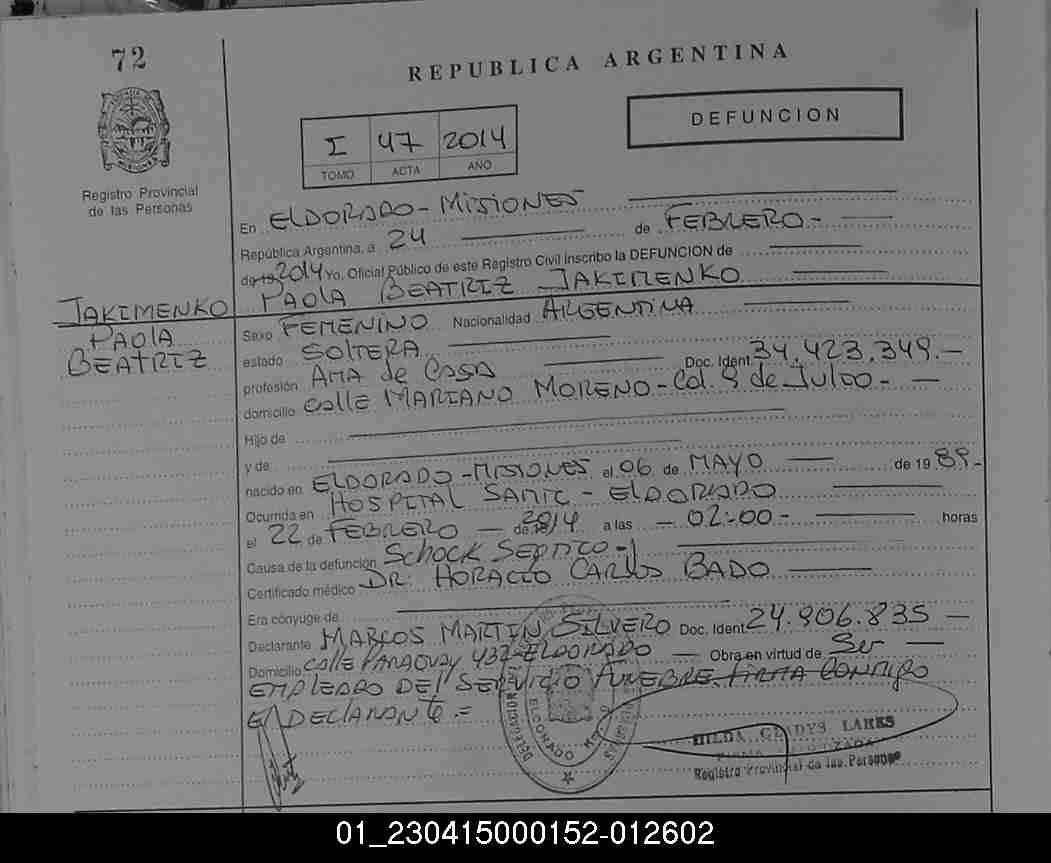 72
REPUBLICA ARGENTINA
DEFUNCION
I 47 2014
TOMO ACTA AÑO
Registro Provincial
de las Personas
En ELDORADO - MISIONES
República Argentina, a 24 de FEBRERO -
de 2014 Yo, Oficial Público de este Registro Civil inscribo la DEFUNCION de
PAOLA BEATRIZ JAKIMENKO
JAKIMENKO
PAOLA
BEATRIZ
Sexo FEMENINO Nacionalidad ARGENTINA
estado SOLTERA
profesión AMA de CASA Doc. Ident. 34.423.349.-
domicilio Calle MARIANO MORENO - Col. 9 de Julio - -
Hijo de
y de
nacido en ELDORADO - MISIONES el 06 de MAYO de 1989-
Ocurrida en HOSPITAL SAMIC - ELDORADO
el 22 de FEBRERO - de 2014 a las - 02:00 - horas
Causa de la defunción Schock Septico -
Certificado médico DR. HORACIO CARLOS BADO
Era cónyuge de
Declarante MARCOS MARTIN SILVERO Doc. Ident. 24.906.835 -
Domicilio Calle PARAGUAY 437 - ELDORADO - Obra en virtud de Ser
EMPLEADO DEL SERVICIO FUNEBRE. FIRMA CONMIGO
El DECLARANTE =
DELEGACION
ELDORADO
HILDA GLADYS LARES
FIRMA AUTORIZADA
Registro Provincial de las Personas
01_230415000152-012602